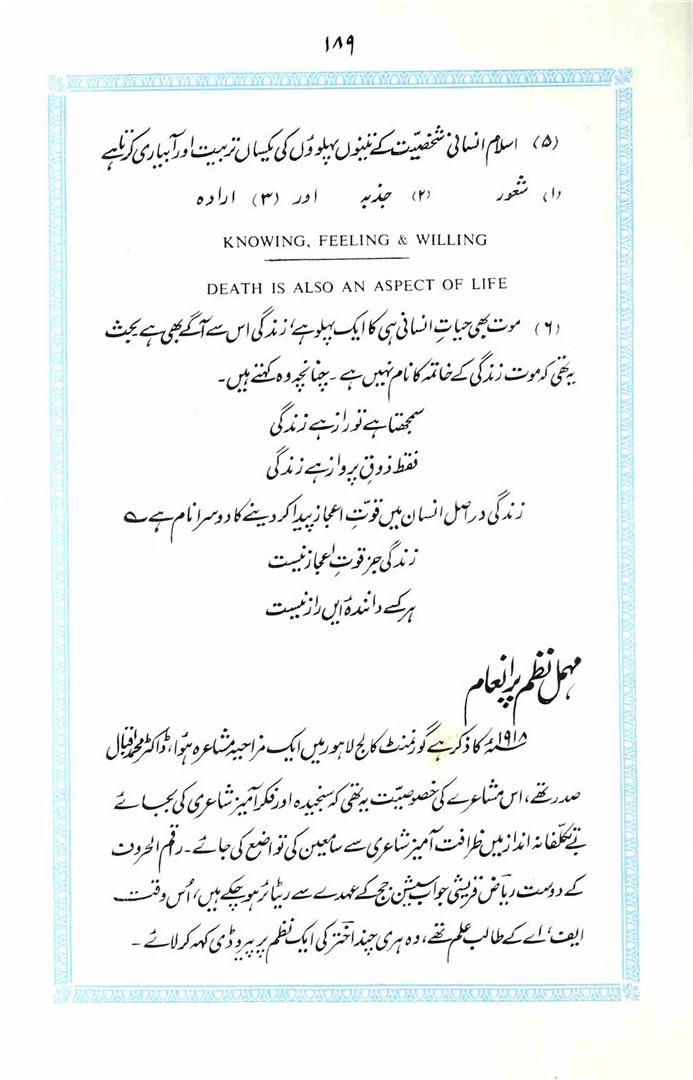 ۱۸۹
(۵) اسلام انسانی شخصیّت کے تینوں پہلوؤں کی یکساں تربیت اور آبیاری کرتا ہے
(۱) شعور (۲) جذبہ اور (۳) ارادہ
KNOWING, FEELING & WILLING
DEATH IS ALSO AN ASPECT OF LIFE
(۶) موت بھی حیاتِ انسانی ہی کا ایک پہلو ہے، زندگی اس سے آگے بھی ہے بحث
یہ تھی کہ موت زندگی کے خاتمہ کا نام نہیں ہے۔ چنانچہ وہ کہتے ہیں۔
سمجھتا ہے تو راز ہے زندگی
فقط ذوقِ پرواز ہے زندگی
زندگی دراصل انسان میں قوتِ اعجاز پیدا کر دینے کا دوسرا نام ہے ؎
زندگی جز قوتِ اعجاز نیست
ہر کسے دانندۂ ایں راز نیست
مہمل نظم پر انعام
۱۹۱۸ء کا ذکر ہے گورنمنٹ کالج لاہور میں ایک مزاحیہ مشاعرہ ہوا، ڈاکٹر محمد اقبال
صدر تھے، اس مشاعرے کی خصوصیّت یہ تھی کہ سنجیدہ اور فکر آمیز شاعری کی بجائے
بے تکلّفانہ انداز میں ظرافت آمیز شاعری سے سامعین کی تواضع کی جائے۔ رقم الحروف
کے دوست ریاض قریشی جو اب سیشن جج کے عہدے سے ریٹائر ہو چکے ہیں، اُس وقت
ایف، اے کے طالب علم تھے، وہ ہری چند اختر کی ایک نظم پر پیروڈی کہہ کر لائے۔